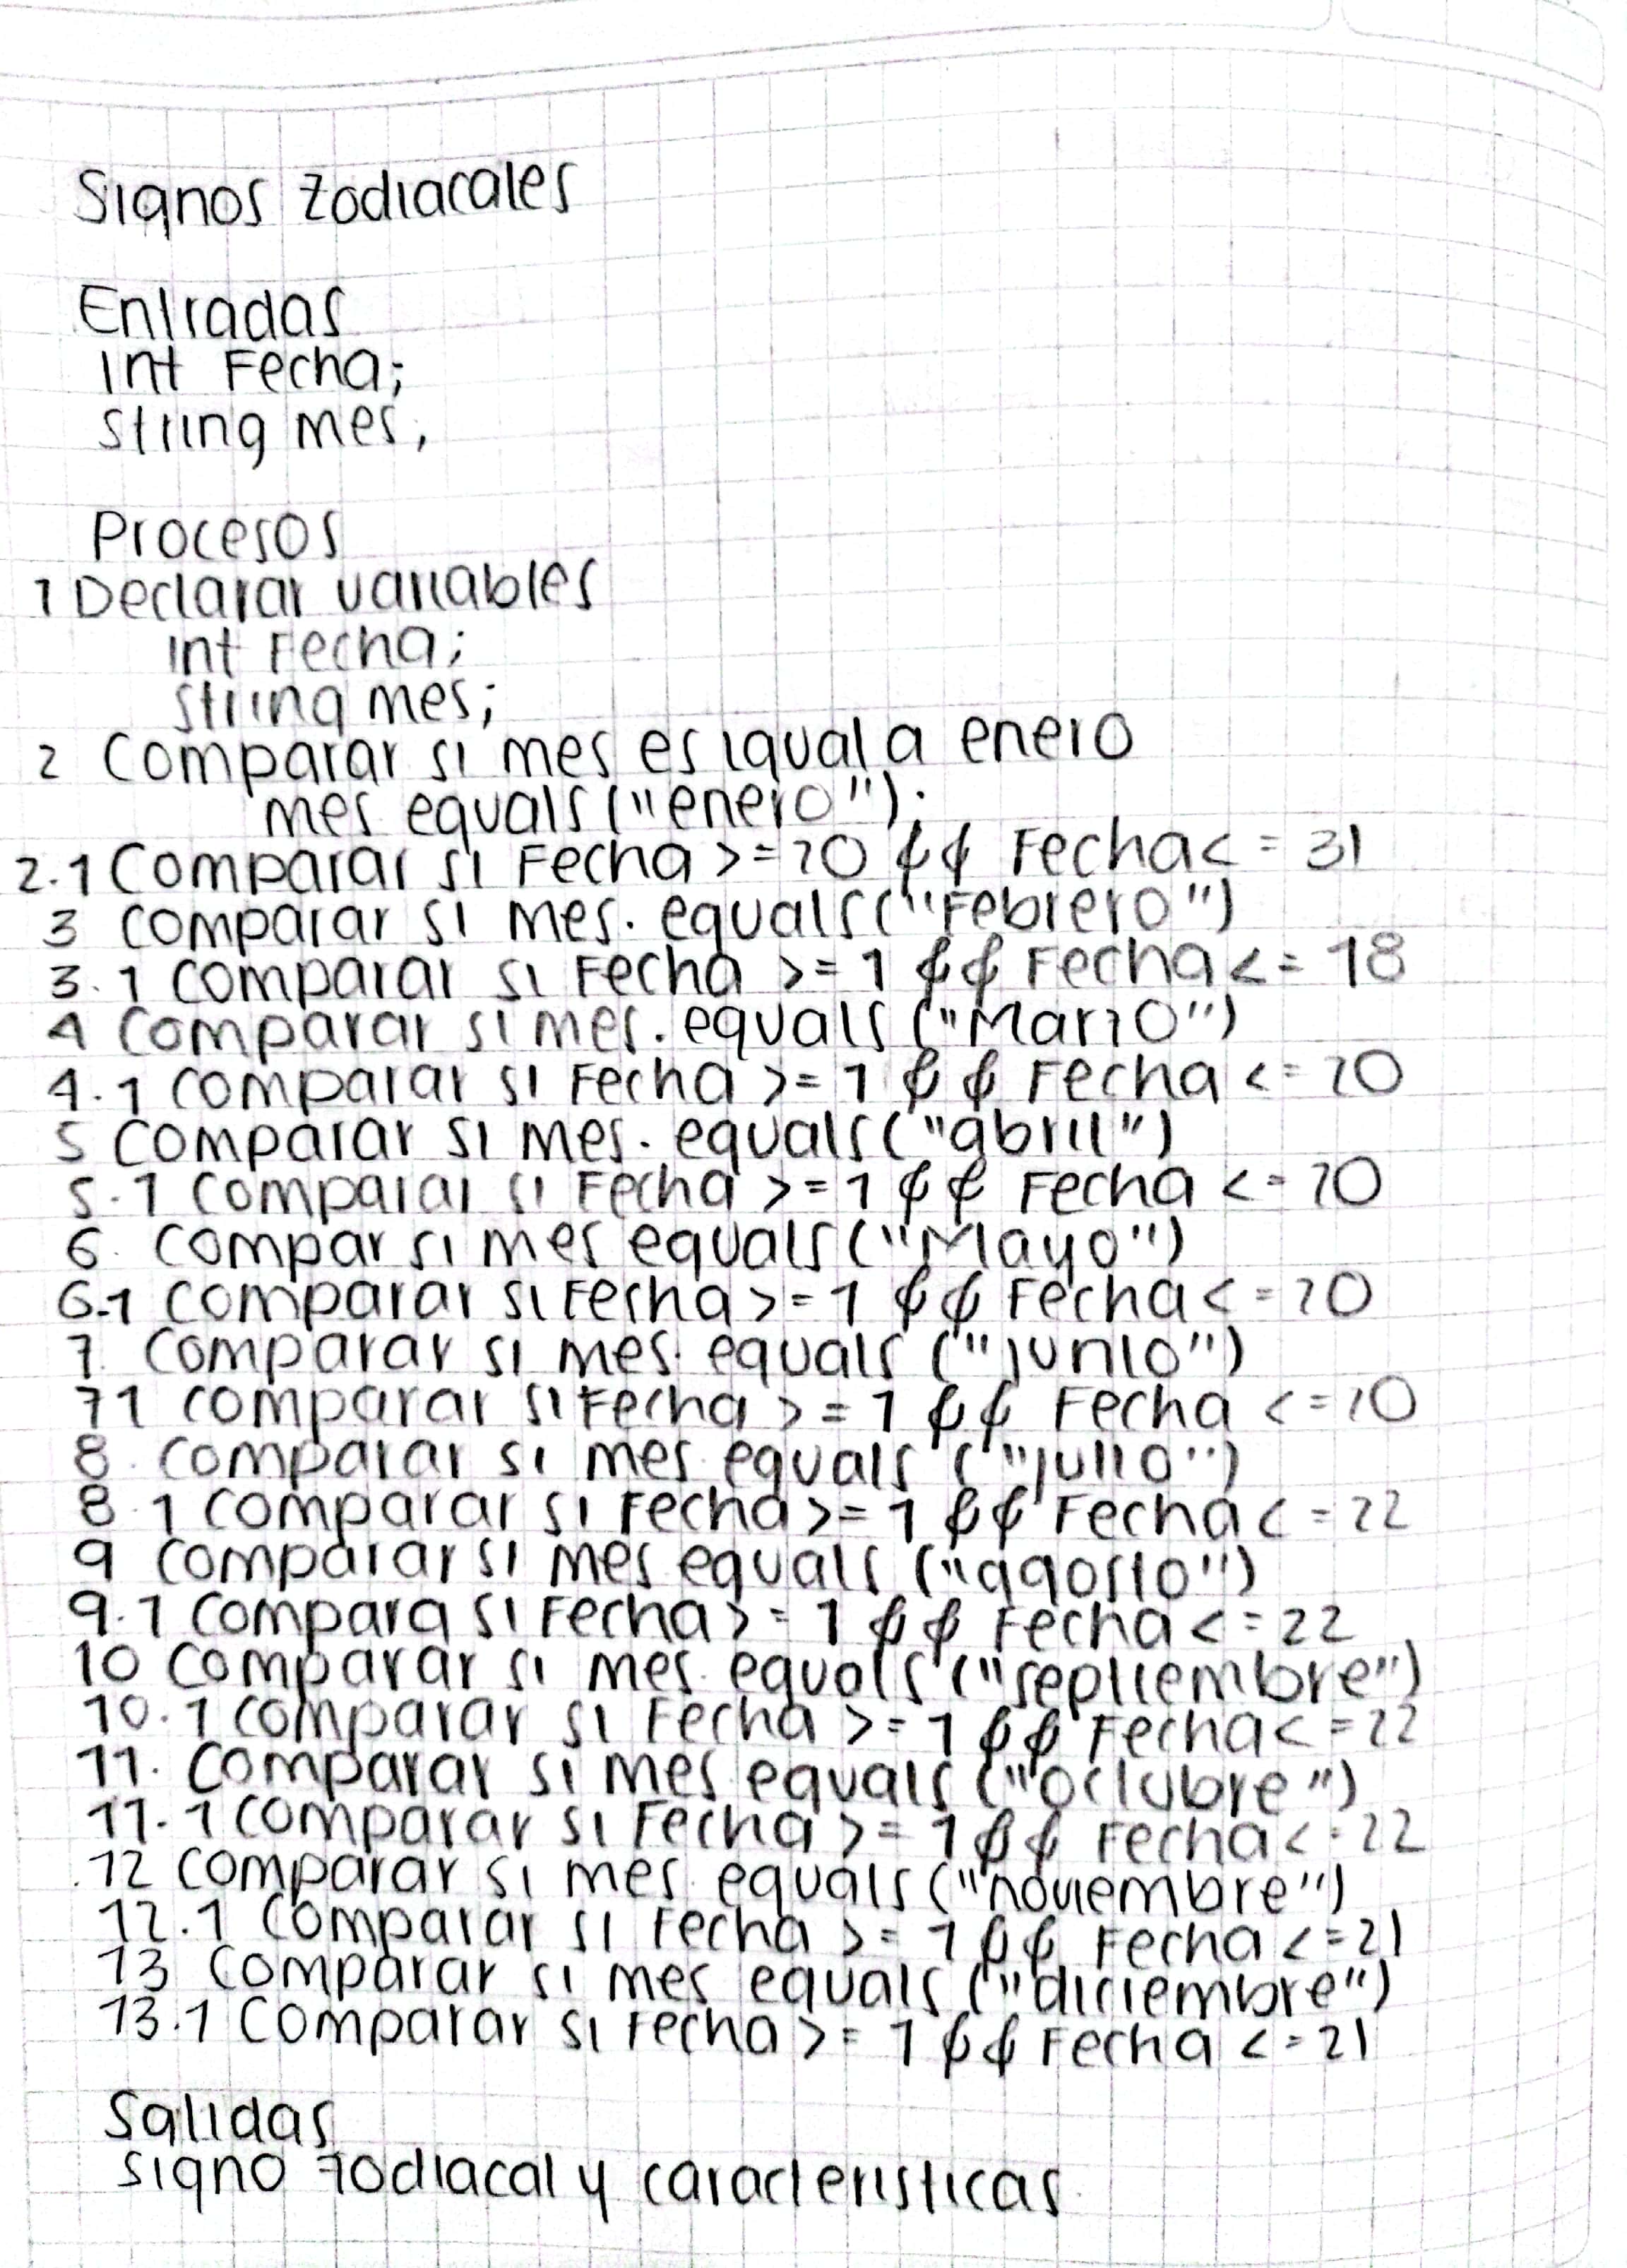 Signos Zodiacales
Entradas
Int Fecha;
String mes,
Procesos
1 Declarar variables
Int Fecha;
String mes;
2 Comparar si mes es igual a enero
mes equals("enero");
2.1 Comparar si Fecha >=20 && Fecha<= 31
3 comparar si mes. equals("Febrero")
3.1 comparar si Fecha >= 1 && Fecha <= 18
4 Comparar si mes. equals ("Marzo")
4.1 comparar si Fecha >= 1 && Fecha <= 20
5 Comparar si mes. equals("abril")
5.1 comparar si Fecha >= 1 && Fecha <= 20
6. compar si mes equals("Mayo")
6.1 comparar si Fecha >= 1 && Fecha <= 20
7. Comparar si mes. equals ("junio")
7 1 comparar si Fecha >= 1 && Fecha <= 20
8. comparar si mes. equals ("julio")
8.1 comparar si Fecha >= 1 && Fecha <= 22
9 comparar si mes equals ("agosto")
9.1 compara si Fecha >= 1 && Fecha <= 22
10 comparar si mes. equals ("septiembre")
10.1 comparar si Fecha >= 1 && Fecha <= 22
11. Comparar si mes equals ("octubre")
11.1 comparar si Fecha >= 1 && Fecha <= 22
12 comparar si mes. equals ("noviembre")
12.1 Comparar si Fecha >= 1 && Fecha <= 21
13 Comparar si mes equals ("diciembre")
13.1 Comparar si Fecha >= 1 && Fecha <= 21
Salidas
Signo zodiacal y caracteristicas